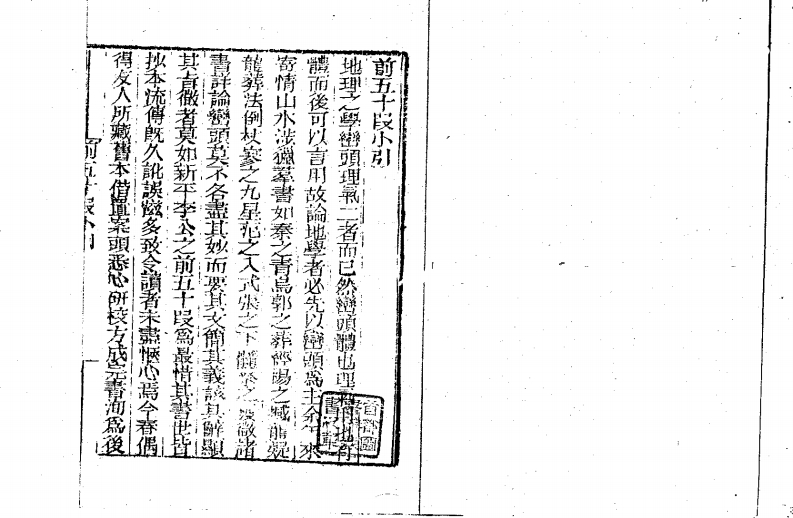 前五十段小引
地理之學巒頭理氣二者而已然巒頭體也理用也有
體而後可以言用故論地學者必先以巒頭為主余年來
寄情山水涉獵羣書如秦之青烏郭之葬經楊之撼龍疑
龍葬法倒杖寥之九星范之入式張之下 蔡之發微諸
書註論巒頭莫不各盡其妙而要其文簡其義該其辭顯
其旨微者莫如新平李公之前五十段為最惜其書世皆
抄本流傳既久訛誤滋多致令讀者未盡愜心焉今春偶
得友人所藏舊本借置案頭悉心研校方成完書洵為後
前五十段小引